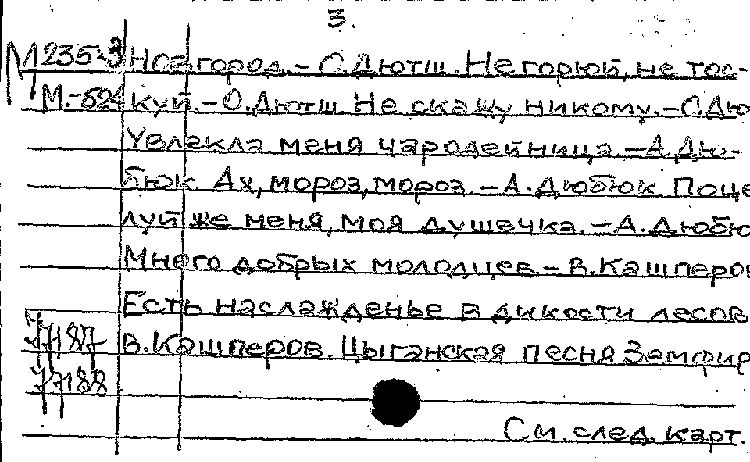 3.
М235-3 Новгород. – О.Дютш. Не горюй, не тос-
М.-524 куй. – О.Дютш Не скажу никому. – О.Дю
Увлекла меня чародейница. – А.Дю-
бюк Ах, мороз, мороз. – А.Дюбюк Поце
луй же меня, моя душечка. – А.Дюбю
Много добрых молодцев – В.Кашперов
Есть наслажденье в дикости лесов
77187 В.Кашперов. Цыганская песня Земфир
77188
См. след. карт.